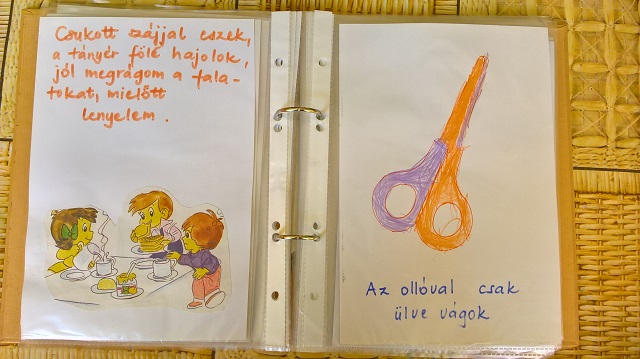 Csukott szájjal eszek,
a tányér fölé hajolok,
jól megrágom a fala-
tokat, mielőtt
lenyelem.
Az ollóval csak
ülve vágok